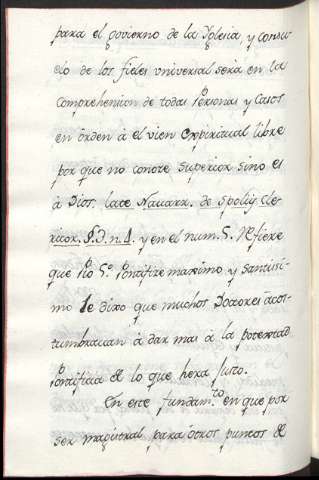 para el govierno de la Yglesia, y consu
elo de los fieles vniversal será en la
comprehension de todas Personas y Casos
en órden à el vien espiritual libre
por que no conoce superior sino es
à Dios. late Nauarr. de spolijs Cle-
ricor. §. J. n. 4. y en el num. 5. Refiere
que Pio 5º Pontifize maximo y santissi-
mo le dixo que muchos Doctores acos-
tumbrauan à dar mas à la potestad
Pontificia de lo que hera Justo.
En este fundam.to en que por
ser magistral para otros puntos de